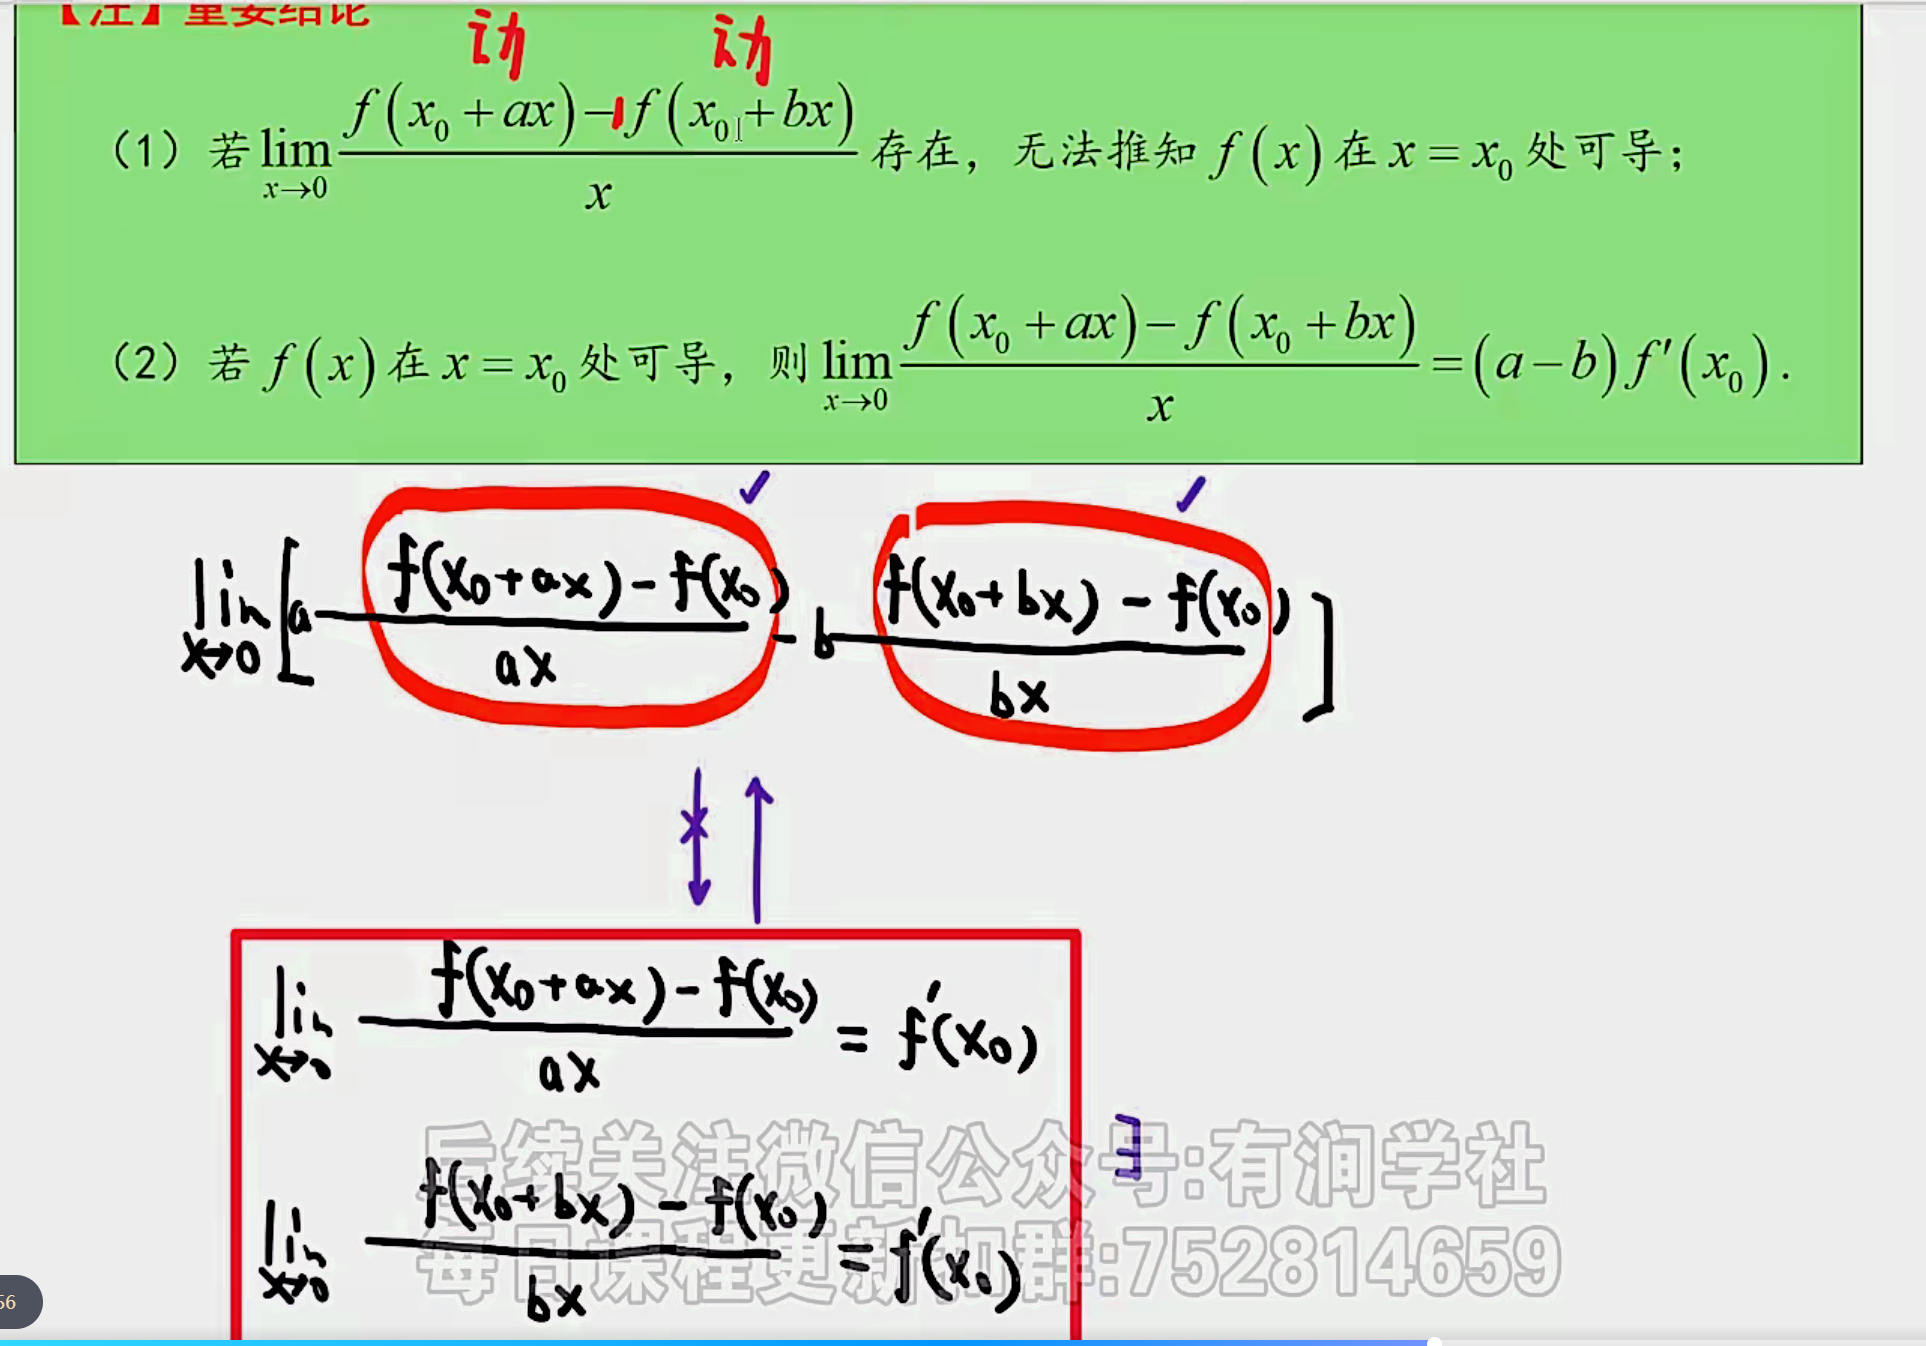 【注】重要结论
动 动
（1）若 lim x→0 f(x₀+ax)−f(x₀+bx) / x 存在，无法推知 f(x) 在 x=x₀ 处可导；
（2）若 f(x) 在 x=x₀ 处可导，则 lim x→0 f(x₀+ax)−f(x₀+bx) / x =(a−b)f′(x₀).
lim x→0 [a f(x₀+ax)−f(x₀) / ax − b f(x₀+bx)−f(x₀) / bx]
lim x→0 f(x₀+ax)−f(x₀) / ax = f′(x₀)
后续关注微信公众号:有润学社
∃
lim x→0 f(x₀+bx)−f(x₀) / bx = f′(x₀)
每日课程更新扣群:752814659
56